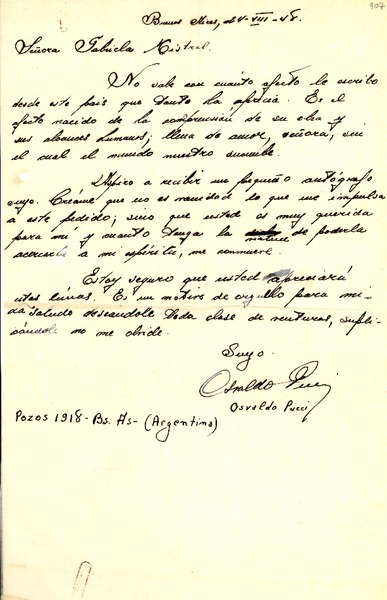 907
Buenos Aires, 24-VIII-48.
Señora Gabriela Mistral.
No sabe con cuánto afecto le escribo
desde este país que tanto la aprecia. Es el
afecto nacido de la comprensión de su obra y
sus alcances humanos; llena de amor, señora, sin
el cual el mundo nuestro sucumbe.
Aspiro a recibir un pequeño autógrafo
suyo. Créame que no es vanidad lo que me impulsa
a este pedido; sino que usted es muy querida
para mí y cuanto tenga la de poderla
acercarla a mi espíritu, me conmueve.
Estoy seguro que usted apreciará
estas líneas. Es un motivo de orgullo para mi
saludo deseandole toda clase de venturas, supli-
cándole no me olvide.
Suyo.
Osvaldo Pucci
Osvaldo Pucci
Pozos 1918-Bs. As-(Argentina)